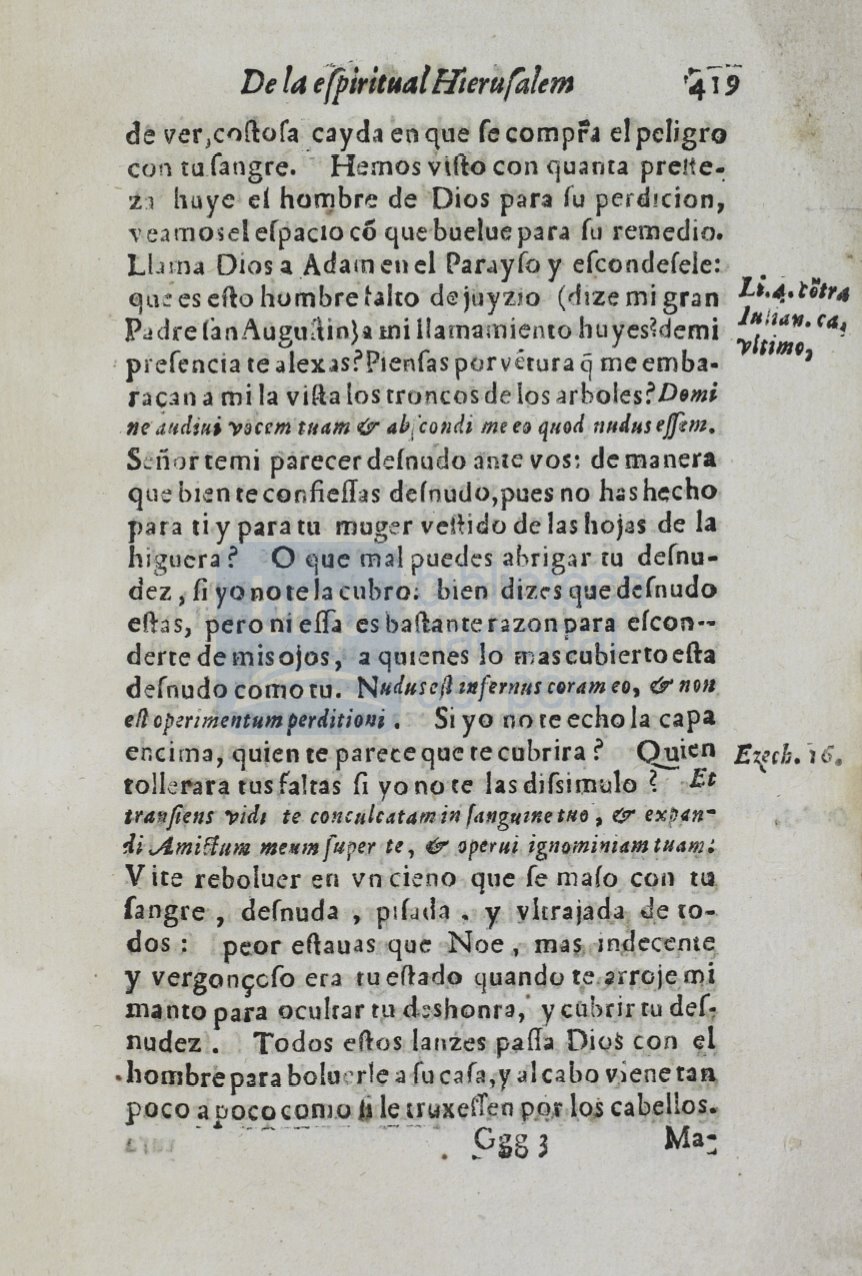 De la eſpiritual Hieruſalem 419
de ver, coſtoſa cayda en que ſe compra el peligro
con tu ſangre. Hemos viſto con quanta preſte-
za huye el hombre de Dios para ſu perdicion,
veamos el eſpacio cõ que buelue para ſu remedio.
Llama Dios a Adam en el Parayſo y eſcondeſele:
que es eſto hombre falto de juyzio (dize mi gran
Padre ſan Auguſtin) a mi llamamiento huyes? de mi
preſencia te alexas? Pienſas por vẽtura q̃ me emba-
raçan a mi la viſta los troncos de los arboles? Domi
ne audiui vocem tuam & abſcondi me eo quod nudus eſſem.
Señor temi parecer deſnudo ante vos: de manera
que bien te confieſſas deſnudo, pues no has hecho
para ti y para tu muger veſtido de las hojas de la
higuera? O que mal puedes abrigar tu deſnu-
dez, ſi yo no te la cubro: bien dizes que deſnudo
eſtas, pero ni eſſa es baſtante razon para eſcon--
derte de mis ojos, a quienes lo mas cubierto eſta
deſnudo como tu. Nudus eſt infernus coram eo, & non
eſt operimentum perditioni. Si yo no te echo la capa
encima, quien te parece que te cubrira? Quien
tollerara tus faltas ſi yo no te las diſsimulo? Et
tranſiens vidi te conculcatam in ſanguine tuo, & expan-
di Amictum meum ſuper te, & operui ignominiam tuam:
Vite reboluer en vn cieno que ſe maſo con tu
ſangre, deſnuda, piſada, y vltrajada de to-
dos: peor eſtauas que Noe, mas indecente
y vergonçoſo era tu eſtado quando te arroje mi
manto para ocultar tu deshonra, y cubrir tu deſ-
nudez. Todos eſtos lanzes paſſa Dios con el
hombre para boluerle a ſu caſa, y al cabo viene tan
poco a poco como ſi le truxeſſen por los cabellos.
Ggg 3 Ma-
Li. 4. cõtra
Iulian. ca.
vltimo,
Ezech. 16.